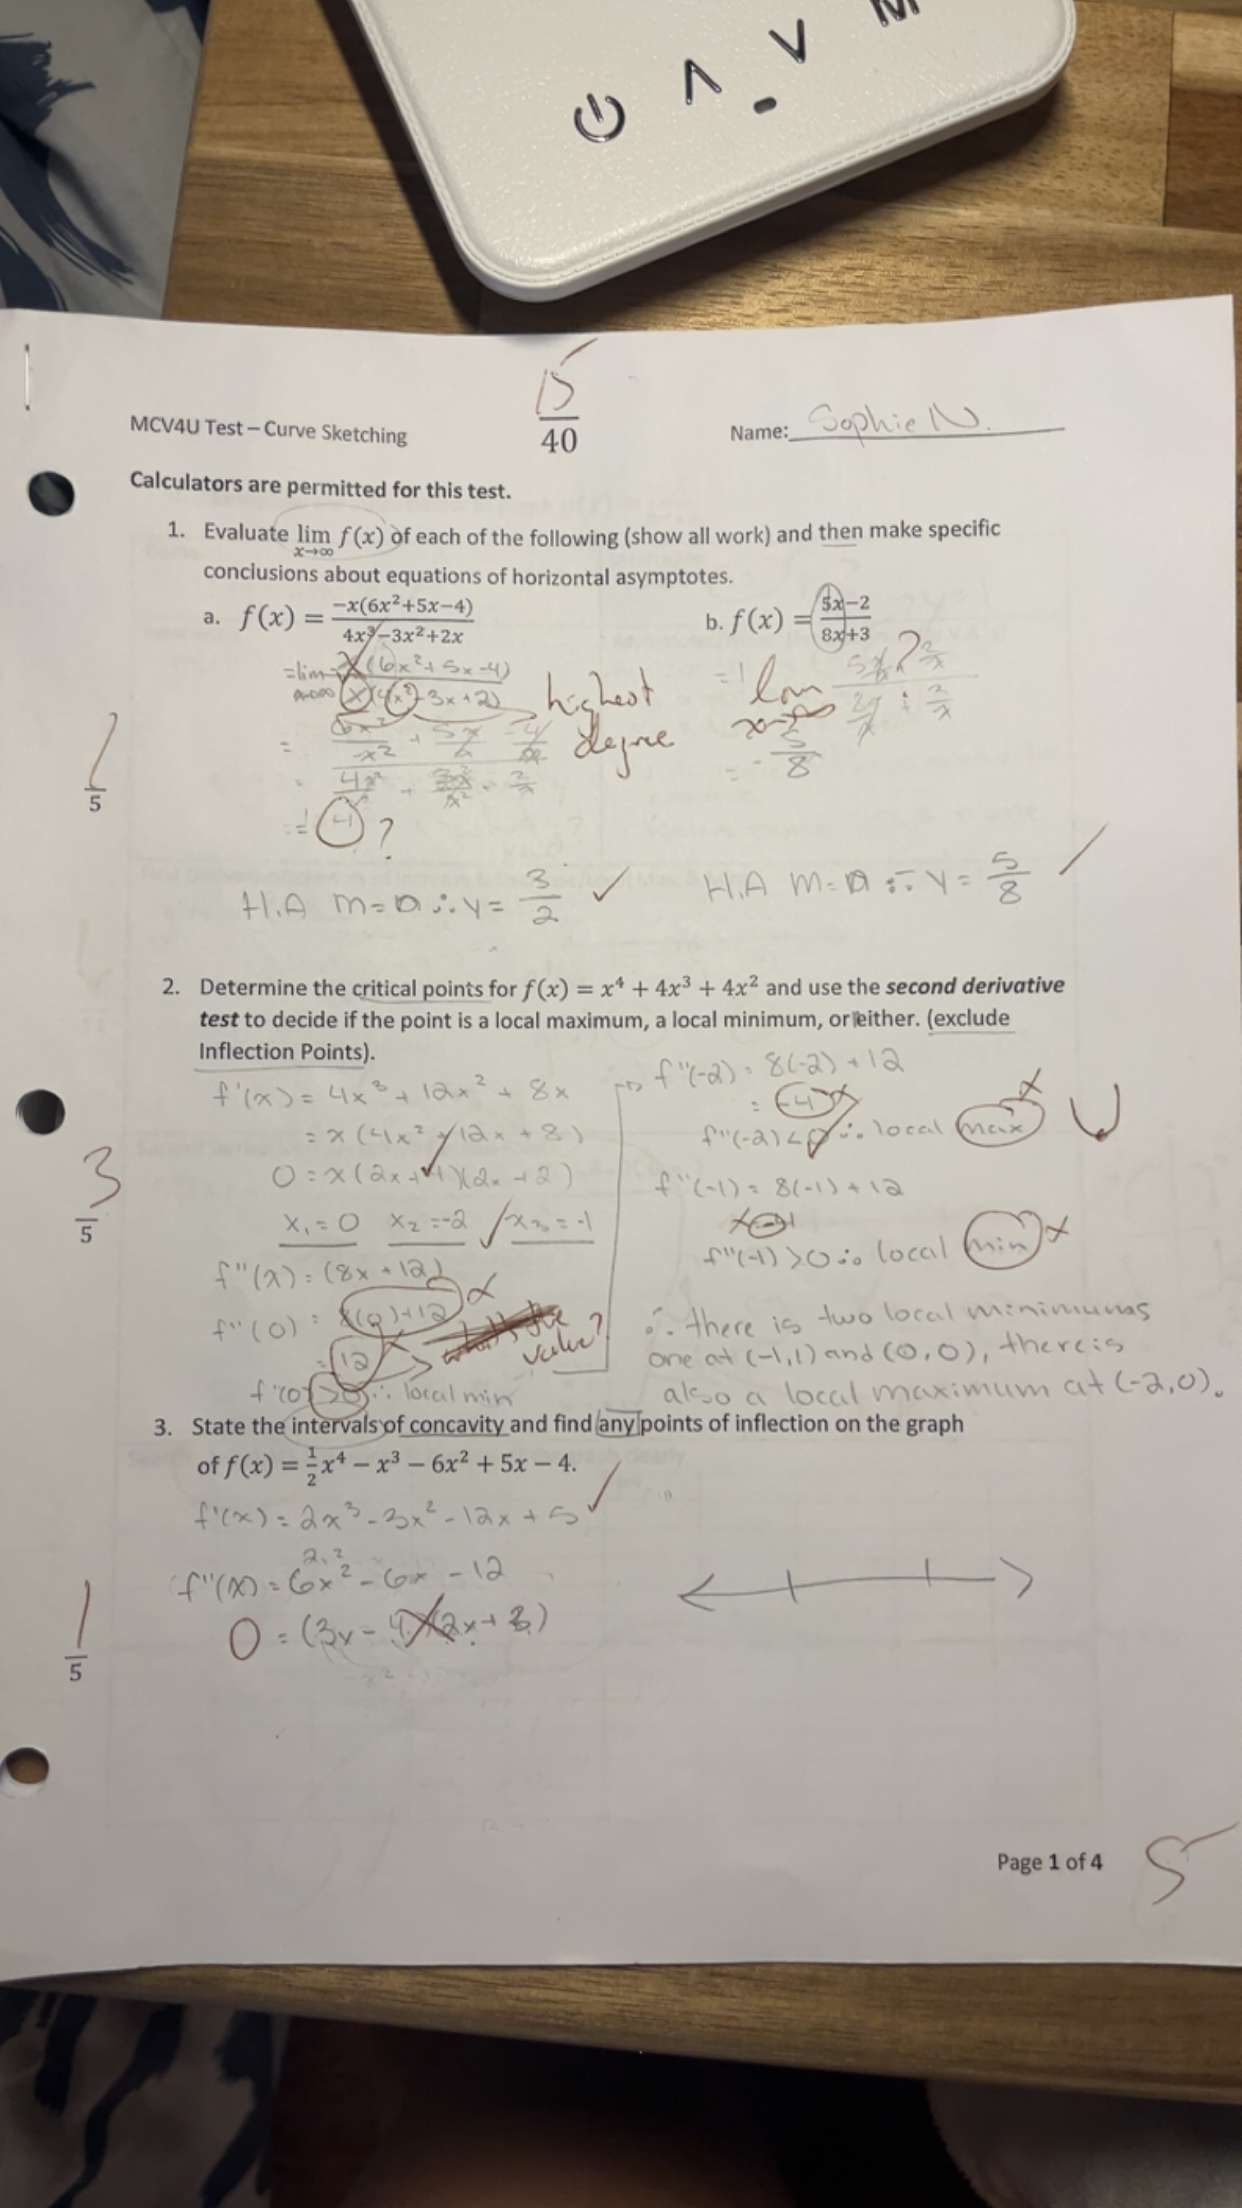 M
15
40
MCV4U Test – Curve Sketching
Name: Sophie N.
Calculators are permitted for this test.
1. Evaluate lim x→∞ f(x) of each of the following (show all work) and then make specific
conclusions about equations of horizontal asymptotes.
a. f(x) = −x(6x²+5x−4) / 4x³−3x²+2x
b. f(x) = 5x−2 / 8x+3
highest
degree
lim
= - 5/8
?
5
H.A m=n ∴ y = 3/2 ✓
H.A m=n ∴ y = 5/8
2. Determine the critical points for f(x) = x⁴ + 4x³ + 4x² and use the second derivative
test to decide if the point is a local maximum, a local minimum, or either. (exclude
Inflection Points).
f'(x) = 4x³ + 12x² + 8x
= x(4x² + 12x + 8)
0 = x(2x+4)(2x+2)
x₁ = 0 x₂ = -2 x₃ = -1
f''(x) = (8x+12)
f''(0) = 8(0)+12
= 12
value?
f''(0) > 0 ∴ local min
3
5
f''(-2) = 8(-2) + 12
= -4
f''(-2) < 0 ∴ local max
f''(-1) = 8(-1) + 12
f''(-1) > 0 ∴ local min
∴ there is two local minimums
one at (-1,1) and (0,0), there is
also a local maximum at (-2,0).
3. State the intervals of concavity and find any points of inflection on the graph
of f(x) = ½x⁴ − x³ − 6x² + 5x − 4.
f'(x) = 2x³ - 3x² - 12x + 5
f''(x) = 6x² - 6x - 12
0 = (3x - 4)(2x + 3)
1
5
Page 1 of 4
5